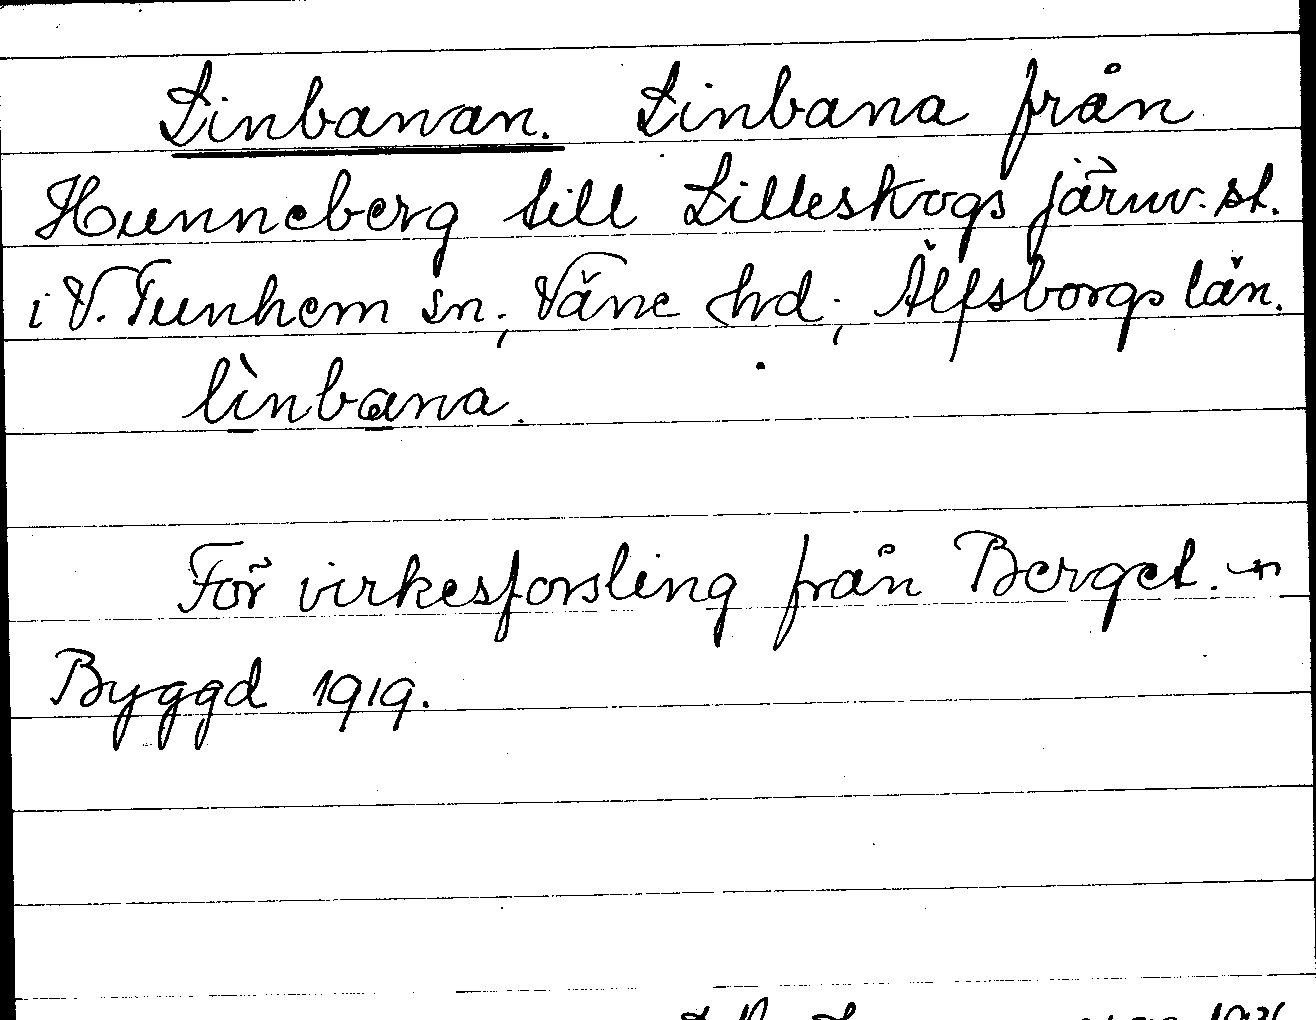 Linbanan. Linbana från
Hunneberg till Lilleskogs järnv. st.
i V. Tunhem sn, Väne hd, Älfsborgs län.
lìnbana.
För virkesforsling från Berget. –
Byggd 1919.